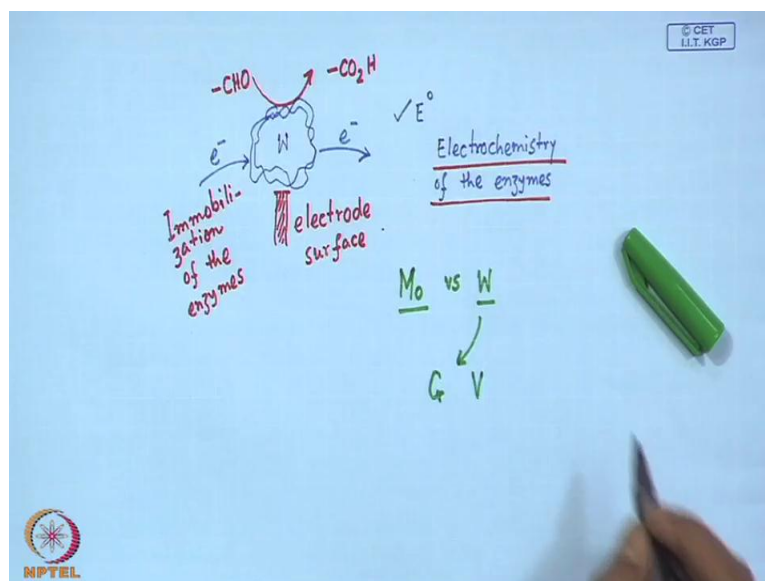 © CET
I.I.T. KGP
-CHO
-CO₂H
W
e⁻
e⁻
✓E°
Electrochemistry
of the enzymes
Immobili-
zation
of the
enzymes
electrode
surface
Mo vs W
Cr V
NPTEL